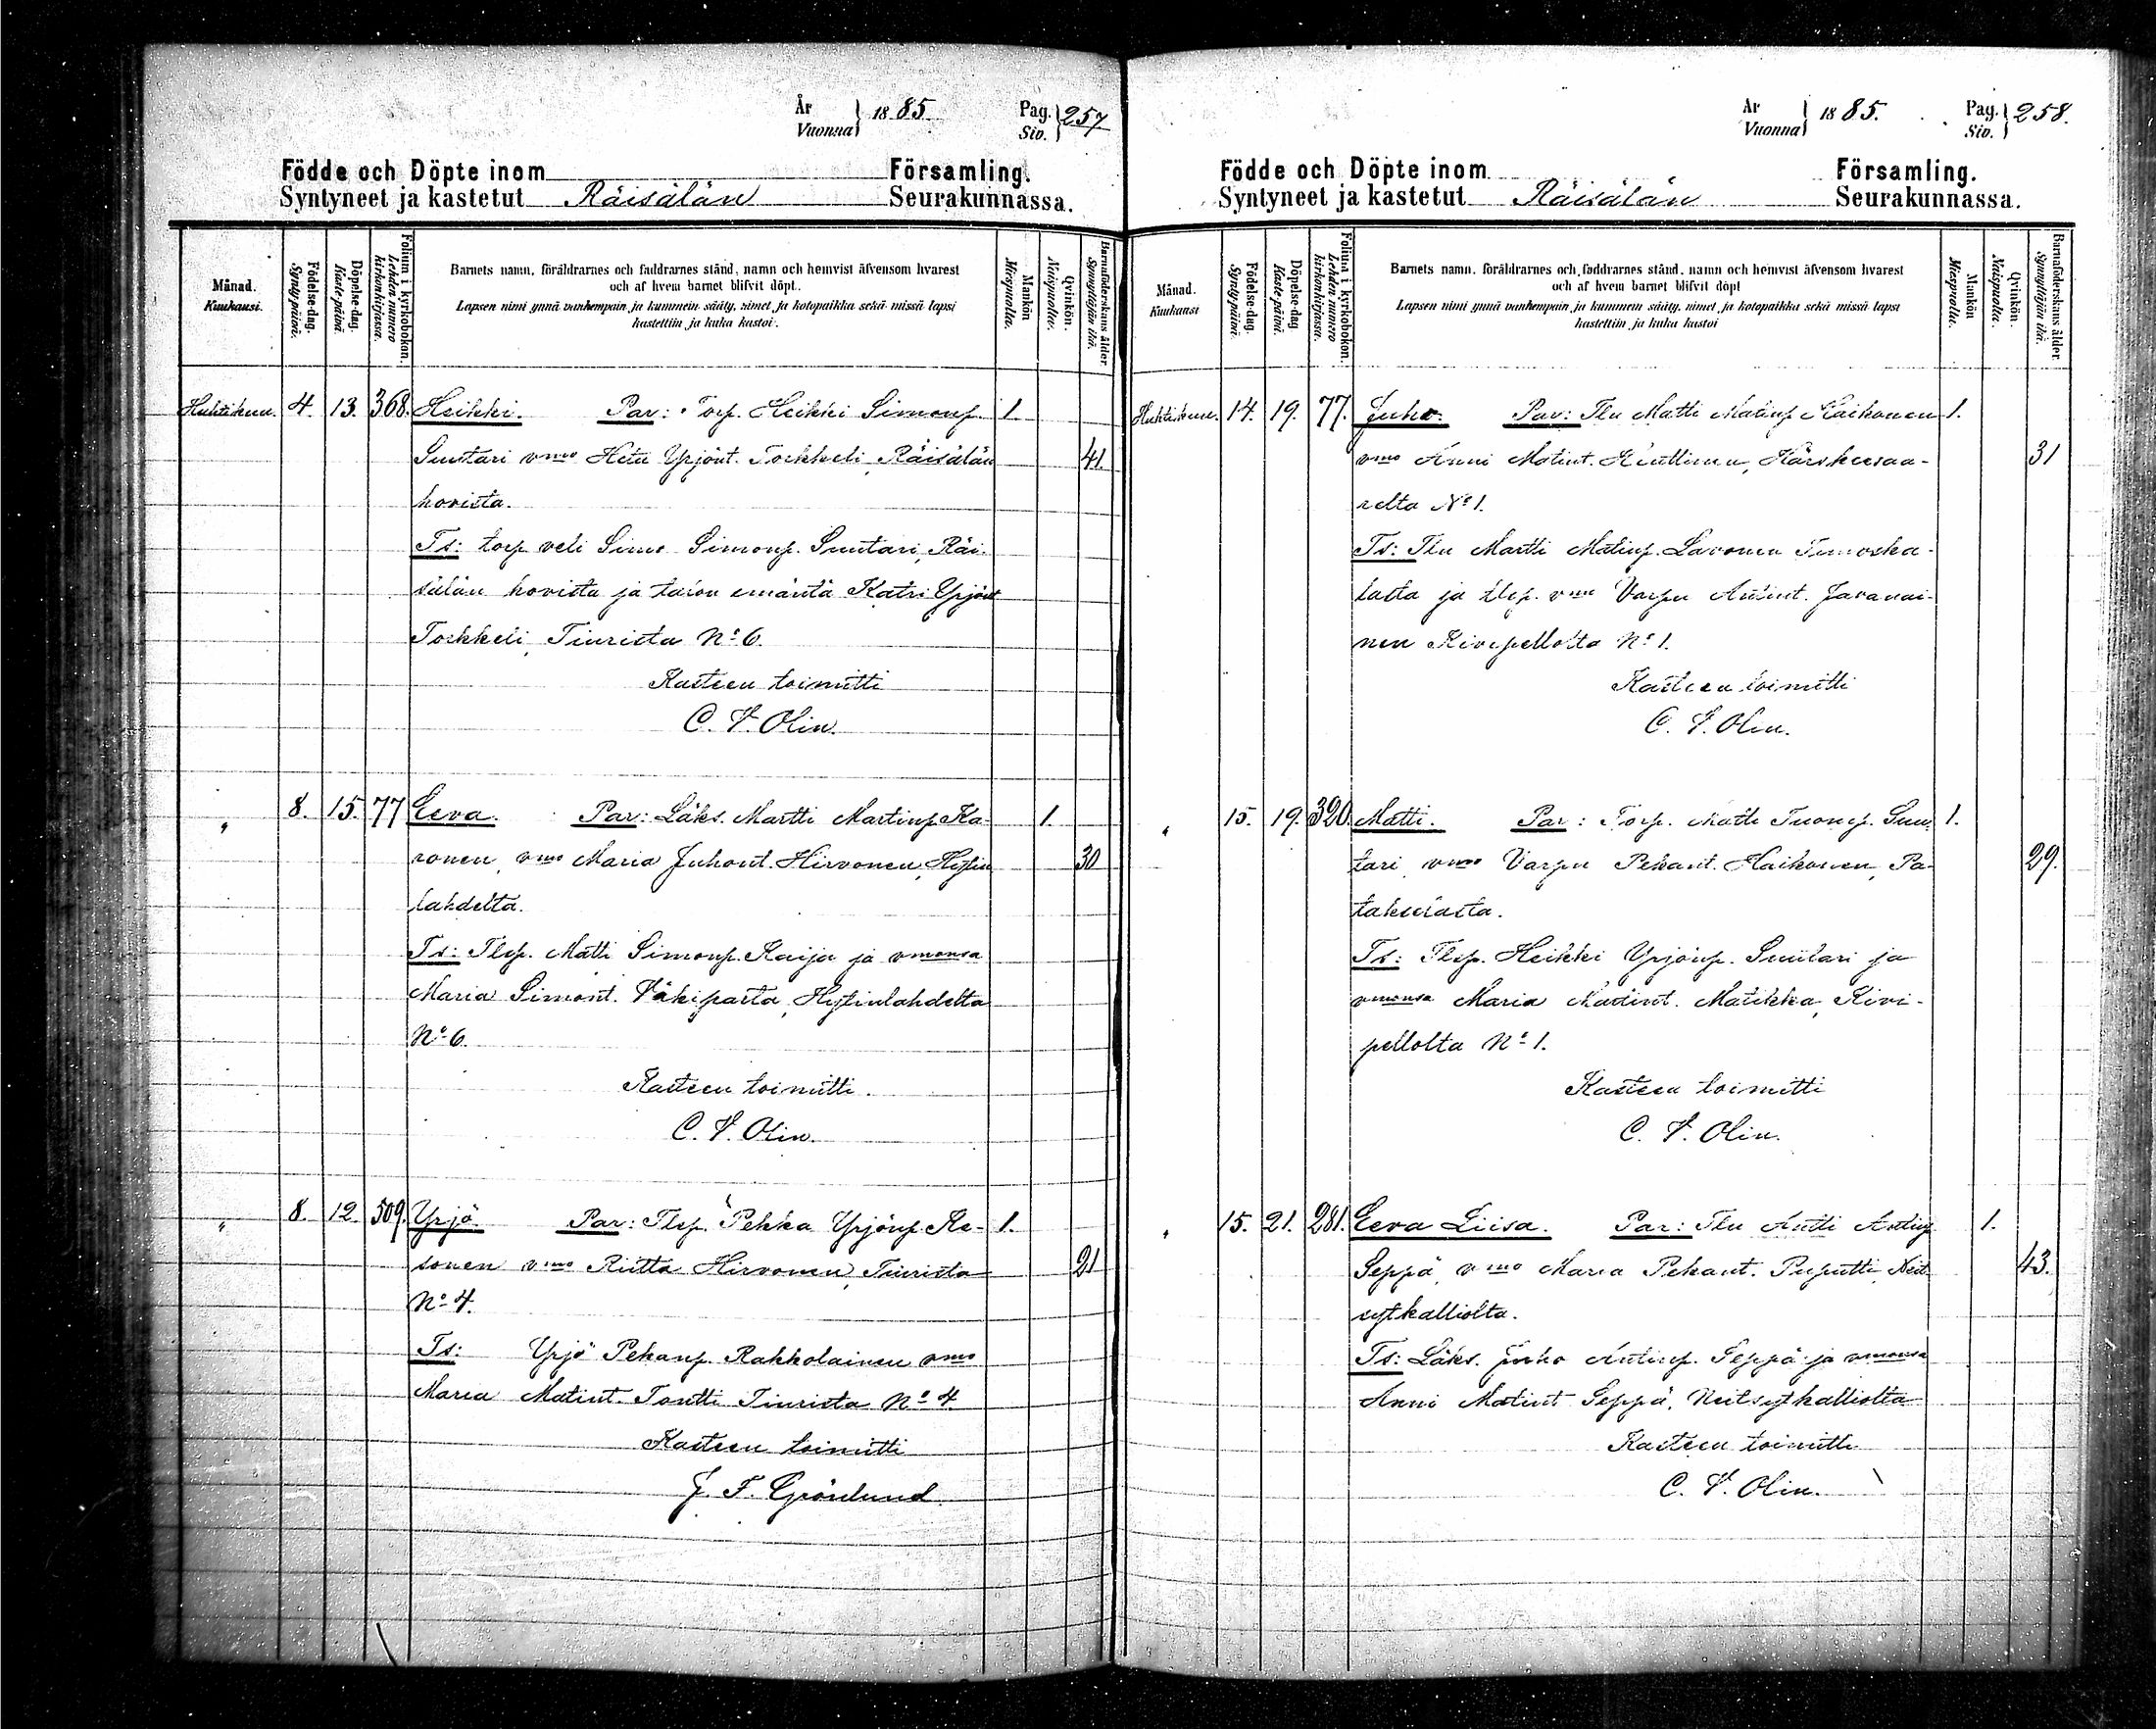 År
Vuonna } 1885. Pag.
Siv. } 257
Födde och Döpte inom Församling.
Syntyneet ja kastetut Räisälän Seurakunnassa.
Månad.
Kuukausi.
Födelse-dag.
Synty-päivä.
Döpelse-dag.
Kaste-päivä
Folium i kyrkoboken.
Lehden numero
kirkonkirjassa.
Barnets namn, föräldrarnes och faddrarnes stånd, namn och hemvist äfvensom hvarest
och af hvem barnet blifvit döpt.
Lapsen nimi ynnä vanhempain ja kummein sääty, nimet ja kotopaikka sekä missä lapsi
kastettiin ja kuka kastoi.
Mankön
Miespuolia.
Qvinkön.
Naispuolia.
Barnaföderskans ålder.
Synnyttäjän ikä.
Huhtikuu. 4. 13. 368. Heikki. Par: Torp. Heikki Simonp. 1
Suutari vmo Heta Yrjönt. Torkkeli, Räisälän 41
hovista.
Ts: torp veli Simo Simonp. Suutari, Räi-
sälän hovista ja talon emäntä Katri Yrjönt
Torkkeli, Tiurista No 6.
Kasteen toimitti
C. F. Olin.
„ 8. 15. 77 Eeva. Par: Läks. Martti Martinp. Ka- 1.
ronen, vmo Maria Juhont. Hirvonen, Hytin 30
lahdelta.
Ts: Tlep. Matti Simonp. Kaija ja vmonsa
Maria Simont. Väkiparta, Hytinlahdelta
No 6.
Kasteen toimitti.
C. F. Olin.
„ 8. 12. 509. Yrjö Par: Tlep. Pekka Yrjönp. Re- 1.
sonen vmo Riitta Hirvonen, Tiurista 21
No 4.
Ts: Yrjö Pekanp. Rakkolainen vmo
Maria Matint. Tontti Tiurista No 4
Kasteen toimitti
J. F. Grönlund.
År
Vuonna } 1885. Pag.
Siv. } 258.
Födde och Döpte inom Församling.
Syntyneet ja kastetut Räisälän Seurakunnassa.
Månad.
Kuukausi
Födelse-dag.
Synty-päivä.
Döpelse-dag
Kaste-päivä.
Folium i kyrkoboken.
Lehden numero
kirkonkirjassa.
Barnets namn, föräldrarnes och faddrarnes stånd, namn och hemvist äfvensom hvarest
och af hvem barnet blifvit döpt
Lapsen nimi ynnä vanhempain ja kummein sääty, nimet ja kotopaikka sekä missä lapsi
kastettiin ja kuka kastoi
Mankön
Miespuolia.
Qvinkön.
Naispuolia.
Barnaföderskans ålder.
Synnyttäjän ikä.
Huhtikuu. 14. 19. 77. Juho. Par: Tln Matti Matinp Haikonen 1.
vmo Anni Matint. Kinttinen, Härskeesaa- 31
relta No 1.
Ts: Tln Martti Matinp. Lavonen Timoska-
lasta ja tlep. vmo Varpu Antint. Javanai-
nen Kivipellolta No 1.
Kasteen toimitti
C. F. Olin.
„ 15. 19. 320. Matti. Par: Torp. Matti Tuomp. Suu- 1.
tari, vmo Varpu Pekant. Haikonen, Pa- 29.
Ts: Tlep. Heikki Yrjönp. Suutari ja
vmonsa Maria Matint. Matikka, Kivi-
pellolta No 1.
Kasteen toimitti
C. F. Olin.
„ 15. 21. 281. Eeva Liisa. Par: Tln Antti Antinp 1.
Seppä, vmo Maria Pekant. Puputti, Neit 43.
sytkalliolta.
Ts: Läks. Juho Antinp. Seppä ja vmonsa
Anni Matint Seppä, Neitsytkalliolta
Kasteen toimitti
C. F. Olin.